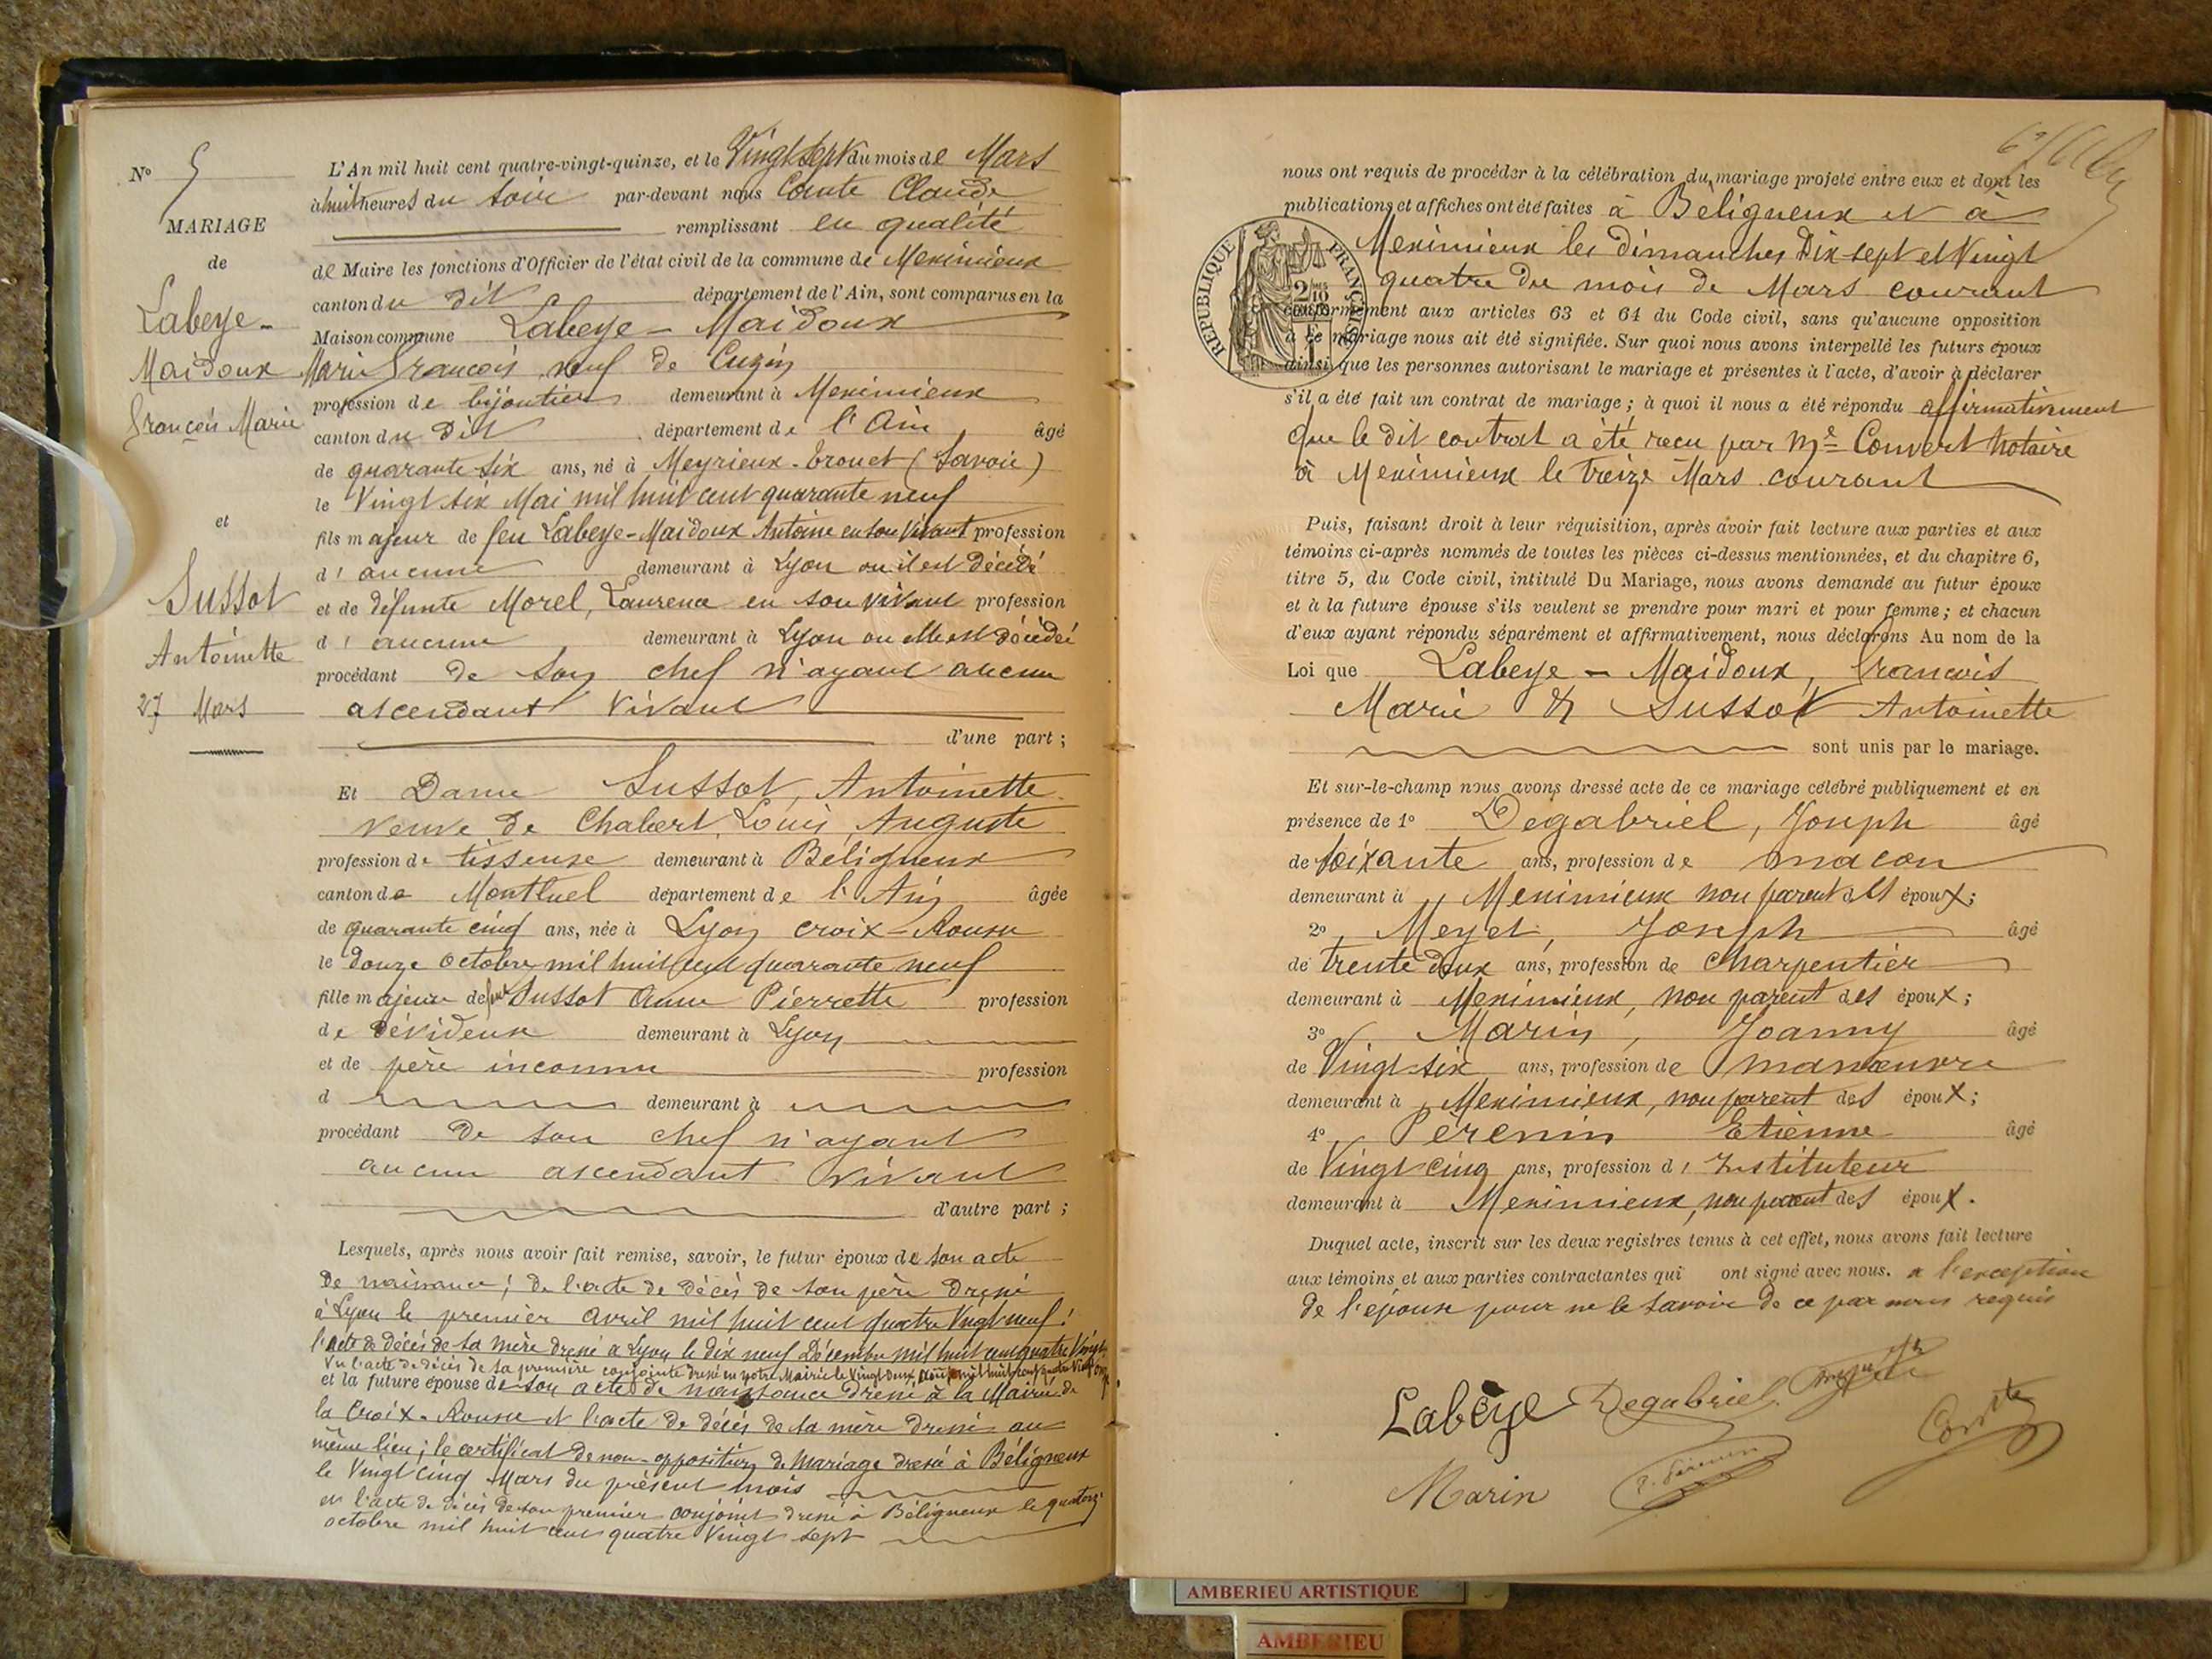 N° 5
MARIAGE
de
Labeye-
Maidoux
François Marie
et
Sussot
Antoinette
27 Mars
L'An mil huit cent quatre-vingt-quinze, et le Vingt sept du mois de Mars
à huit heures du soir par-devant nous Comte Claude
remplissant en qualité
de Maire les fonctions d'Officier de l'état civil de la commune de Meximieux
canton du dit département de l'Ain, sont comparus en la
Maison commune Labeye-Maidoux
Marie François veuf de Cuzin
profession de bijoutier demeurant à Meximieux
canton du Dit département de l'Ain âgé
de quarante six ans, né à Meyrieux-Trouet (Savoie)
le Vingt six Mai mil huit cent quarante neuf
fils majeur de feu Labeye-Maidoux Antoine en son Vivant profession
d'aucune demeurant à Lyon ou il est décédé
et de défunte Morel, Laurence en son vivant profession
d'aucune demeurant à Lyon ou elle est décédée
procédant de son chef n'ayant aucun
ascendant vivant
d'une part ;
Et Dame Sussot, Antoinette
veuve de Chabert, Louis, Auguste
profession de tisseuse demeurant à Béligneux
canton de Montluel département de l'Ain âgée
de quarante cinq ans, née à Lyon croix-Rousse
le douze octobre mil huit cent quarante neuf
fille majeure de feue Sussot Anne Pierrette profession
de dévideuse demeurant à Lyon
et de père inconnu profession
d demeurant à
procédant de son chef n'ayant
aucun ascendant vivant
d'autre part ;
Lesquels, après nous avoir fait remise, savoir, le futur époux de son acte
de naissance ; de l'acte de décès de son père dressé
à Lyon le premier avril mil huit cent quatre Vingt neuf ;
l'acte de décès de sa mère dressé à Lyon le dix neuf Décembre mil huit cent quatre Vingt
Vu l'acte de décès de sa première conjointe dressé en notre Mairie le Vingt deux Août mil huit cent quatre Vingt
et la future épouse de son acte de naissance dressé à la Mairie de
la Croix-Rousse et l'acte de décès de sa mère dressé au
même lieu ; le certificat de non-opposition de Mariage dressé à Béligneux
le Vingt cinq Mars du présent mois
et l'acte de décès de son premier conjoint dressé à Béligneux le quatorze
octobre mil huit cent quatre Vingt sept
nous ont requis de procéder à la célébration du mariage projeté entre eux et dont les
publications et affiches ont été faites à Beligneux et à
Meximieux les dimanches Dix-sept et Vingt
quatre du mois de Mars courant
conformément aux articles 63 et 64 du Code civil, sans qu'aucune opposition
à ce mariage nous ait été signifiée. Sur quoi nous avons interpellé les futurs époux
ainsi que les personnes autorisant le mariage et présentes à l'acte, d'avoir à déclarer
s'il a été fait un contrat de mariage ; à quoi il nous a été répondu affirmativement
que le dit contrat a été recu par Me Convert Notaire
à Meximieux le treize Mars courant
RÉPUBLIQUE FRANÇAISE
Puis, faisant droit à leur réquisition, après avoir fait lecture aux parties et aux
témoins ci-après nommés de toutes les pièces ci-dessus mentionnées, et du chapitre 6,
titre 5, du Code civil, intitulé Du Mariage, nous avons demandé au futur époux
et à la future épouse s'ils veulent se prendre pour mari et pour femme ; et chacun
d'eux ayant répondu séparément et affirmativement, nous déclarons Au nom de la
Loi que Labeye-Maidoux, François
Marie & Sussot Antoinette
sont unis par le mariage.
Et sur-le-champ nous avons dressé acte de ce mariage célébré publiquement et en
présence de 1° Degabriel, Joseph âgé
de soixante ans, profession de macon
demeurant à Meximieux non parent des époux ;
2° Meyet, Joseph âgé
de trente deux ans, profession de charpentier
demeurant à Meximieux, non parent des époux ;
3° Marin, Joanny âgé
de Vingt six ans, profession de manœuvre
demeurant à Meximieux, non parent des époux ;
4° Pérenin Etienne âgé
de Vingt cinq ans, profession d'Instituteur
demeurant à Meximieux, non parent des époux.
Duquel acte, inscrit sur les deux registres tenus à cet effet, nous avons fait lecture
aux témoins et aux parties contractantes qui ont signé avec nous. a l'exception
de l'épouse pour ne le savoir de ce par nous requis
Labeye Degabriel
Comte
Marin
AMBERIEU ARTISTIQUE
AMBERIEU